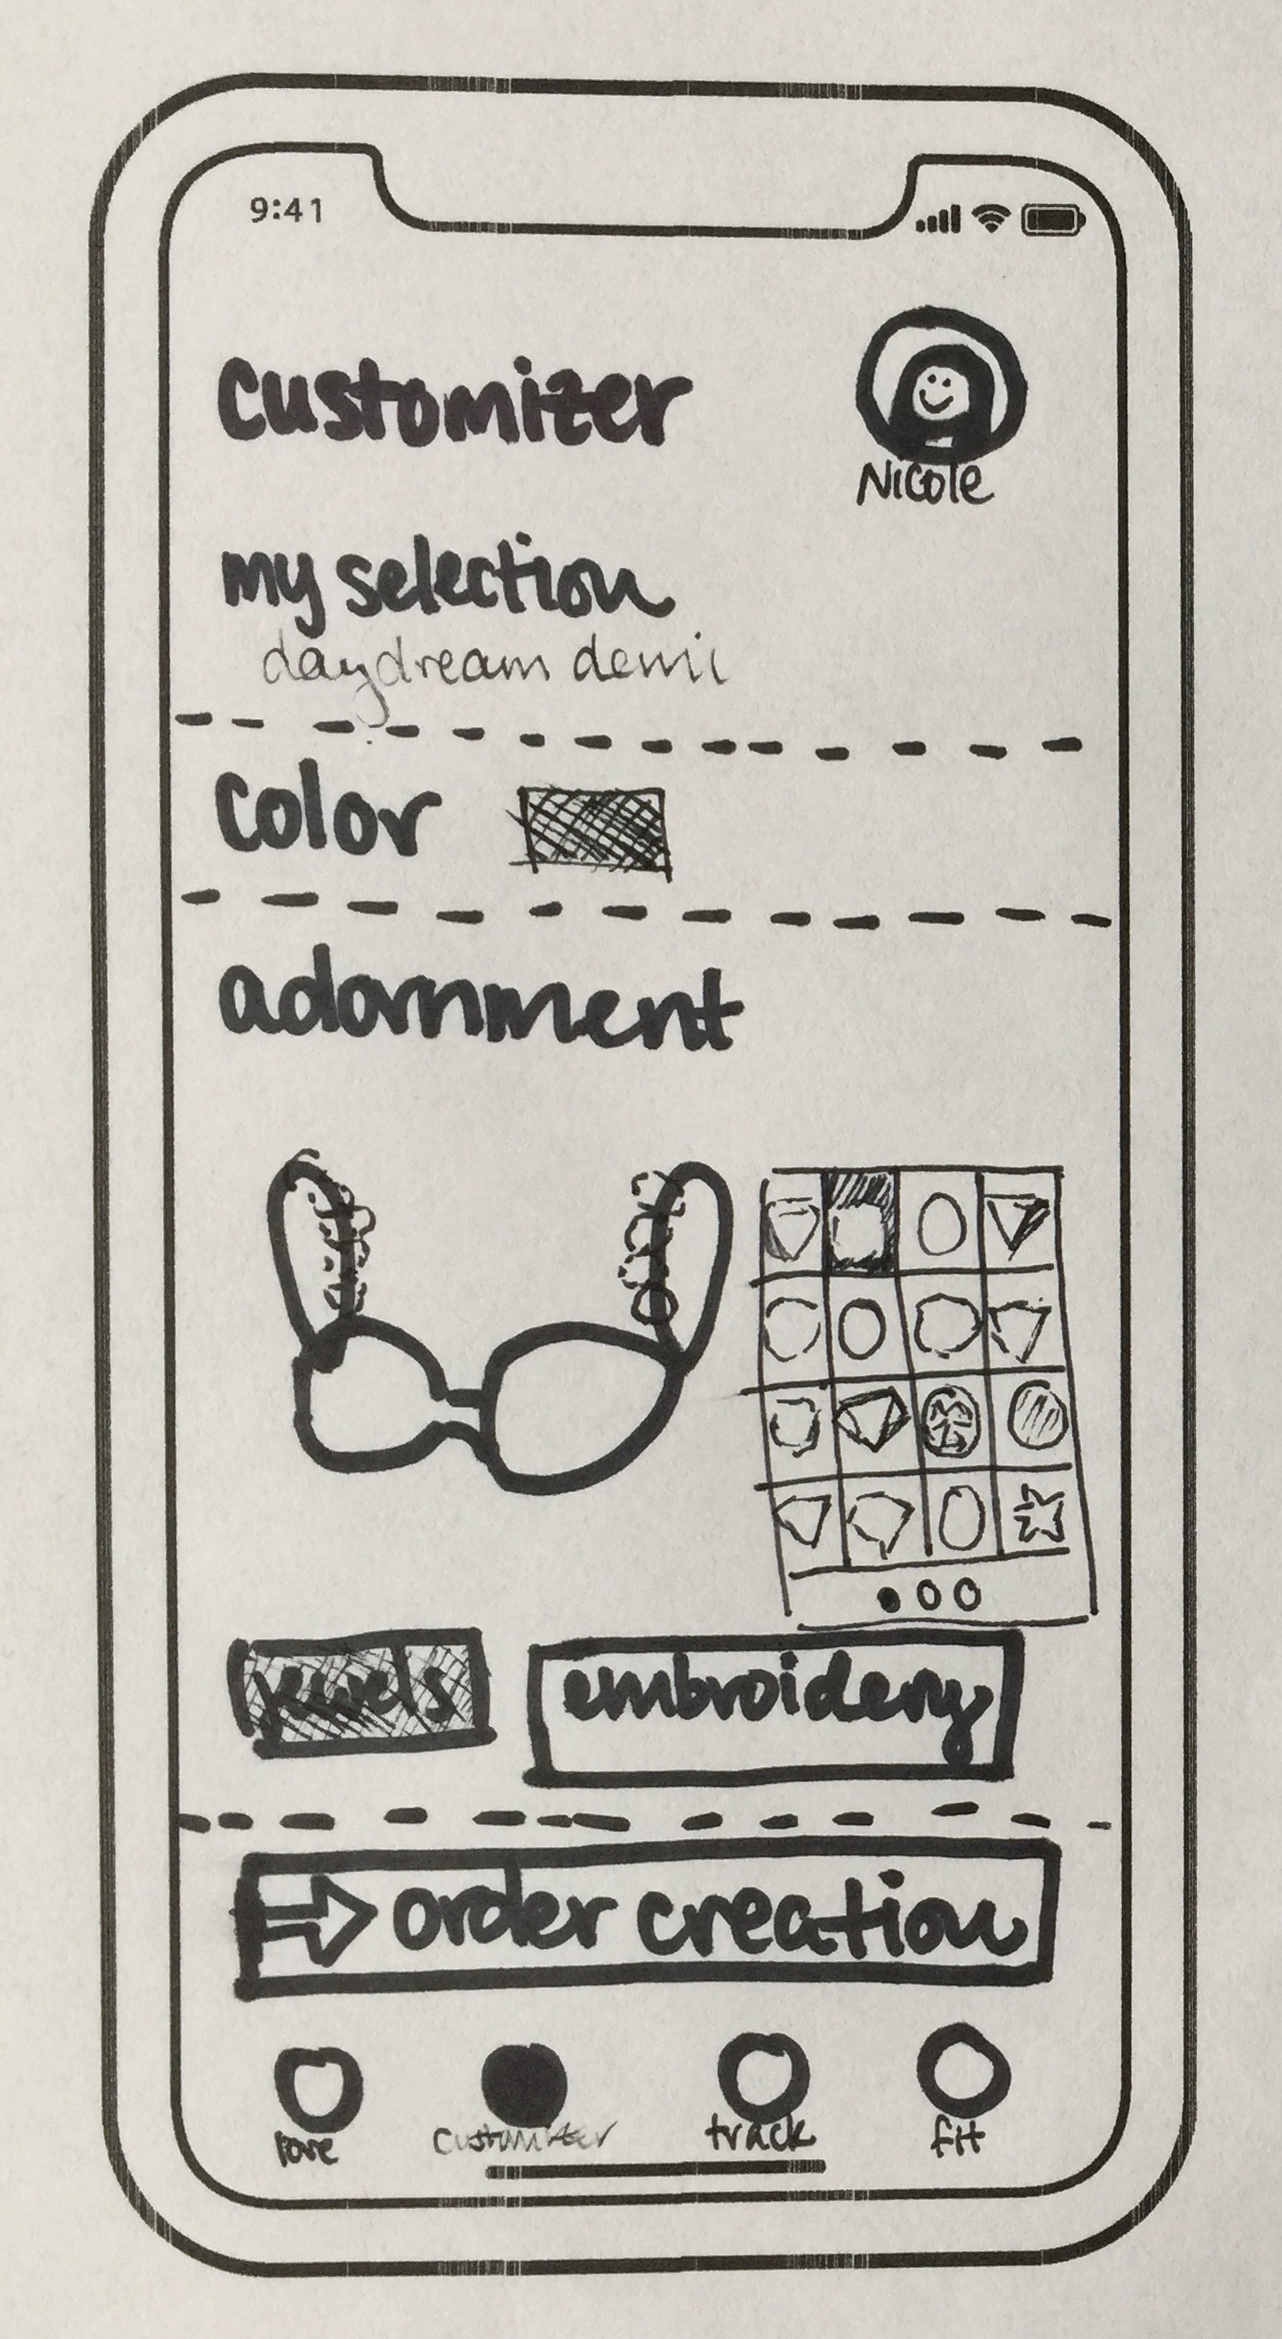 9:41
customizer
Nicole
my selection
daydream demi
color
adornment
jewels
embroidery
order creation
customizer
track
fit